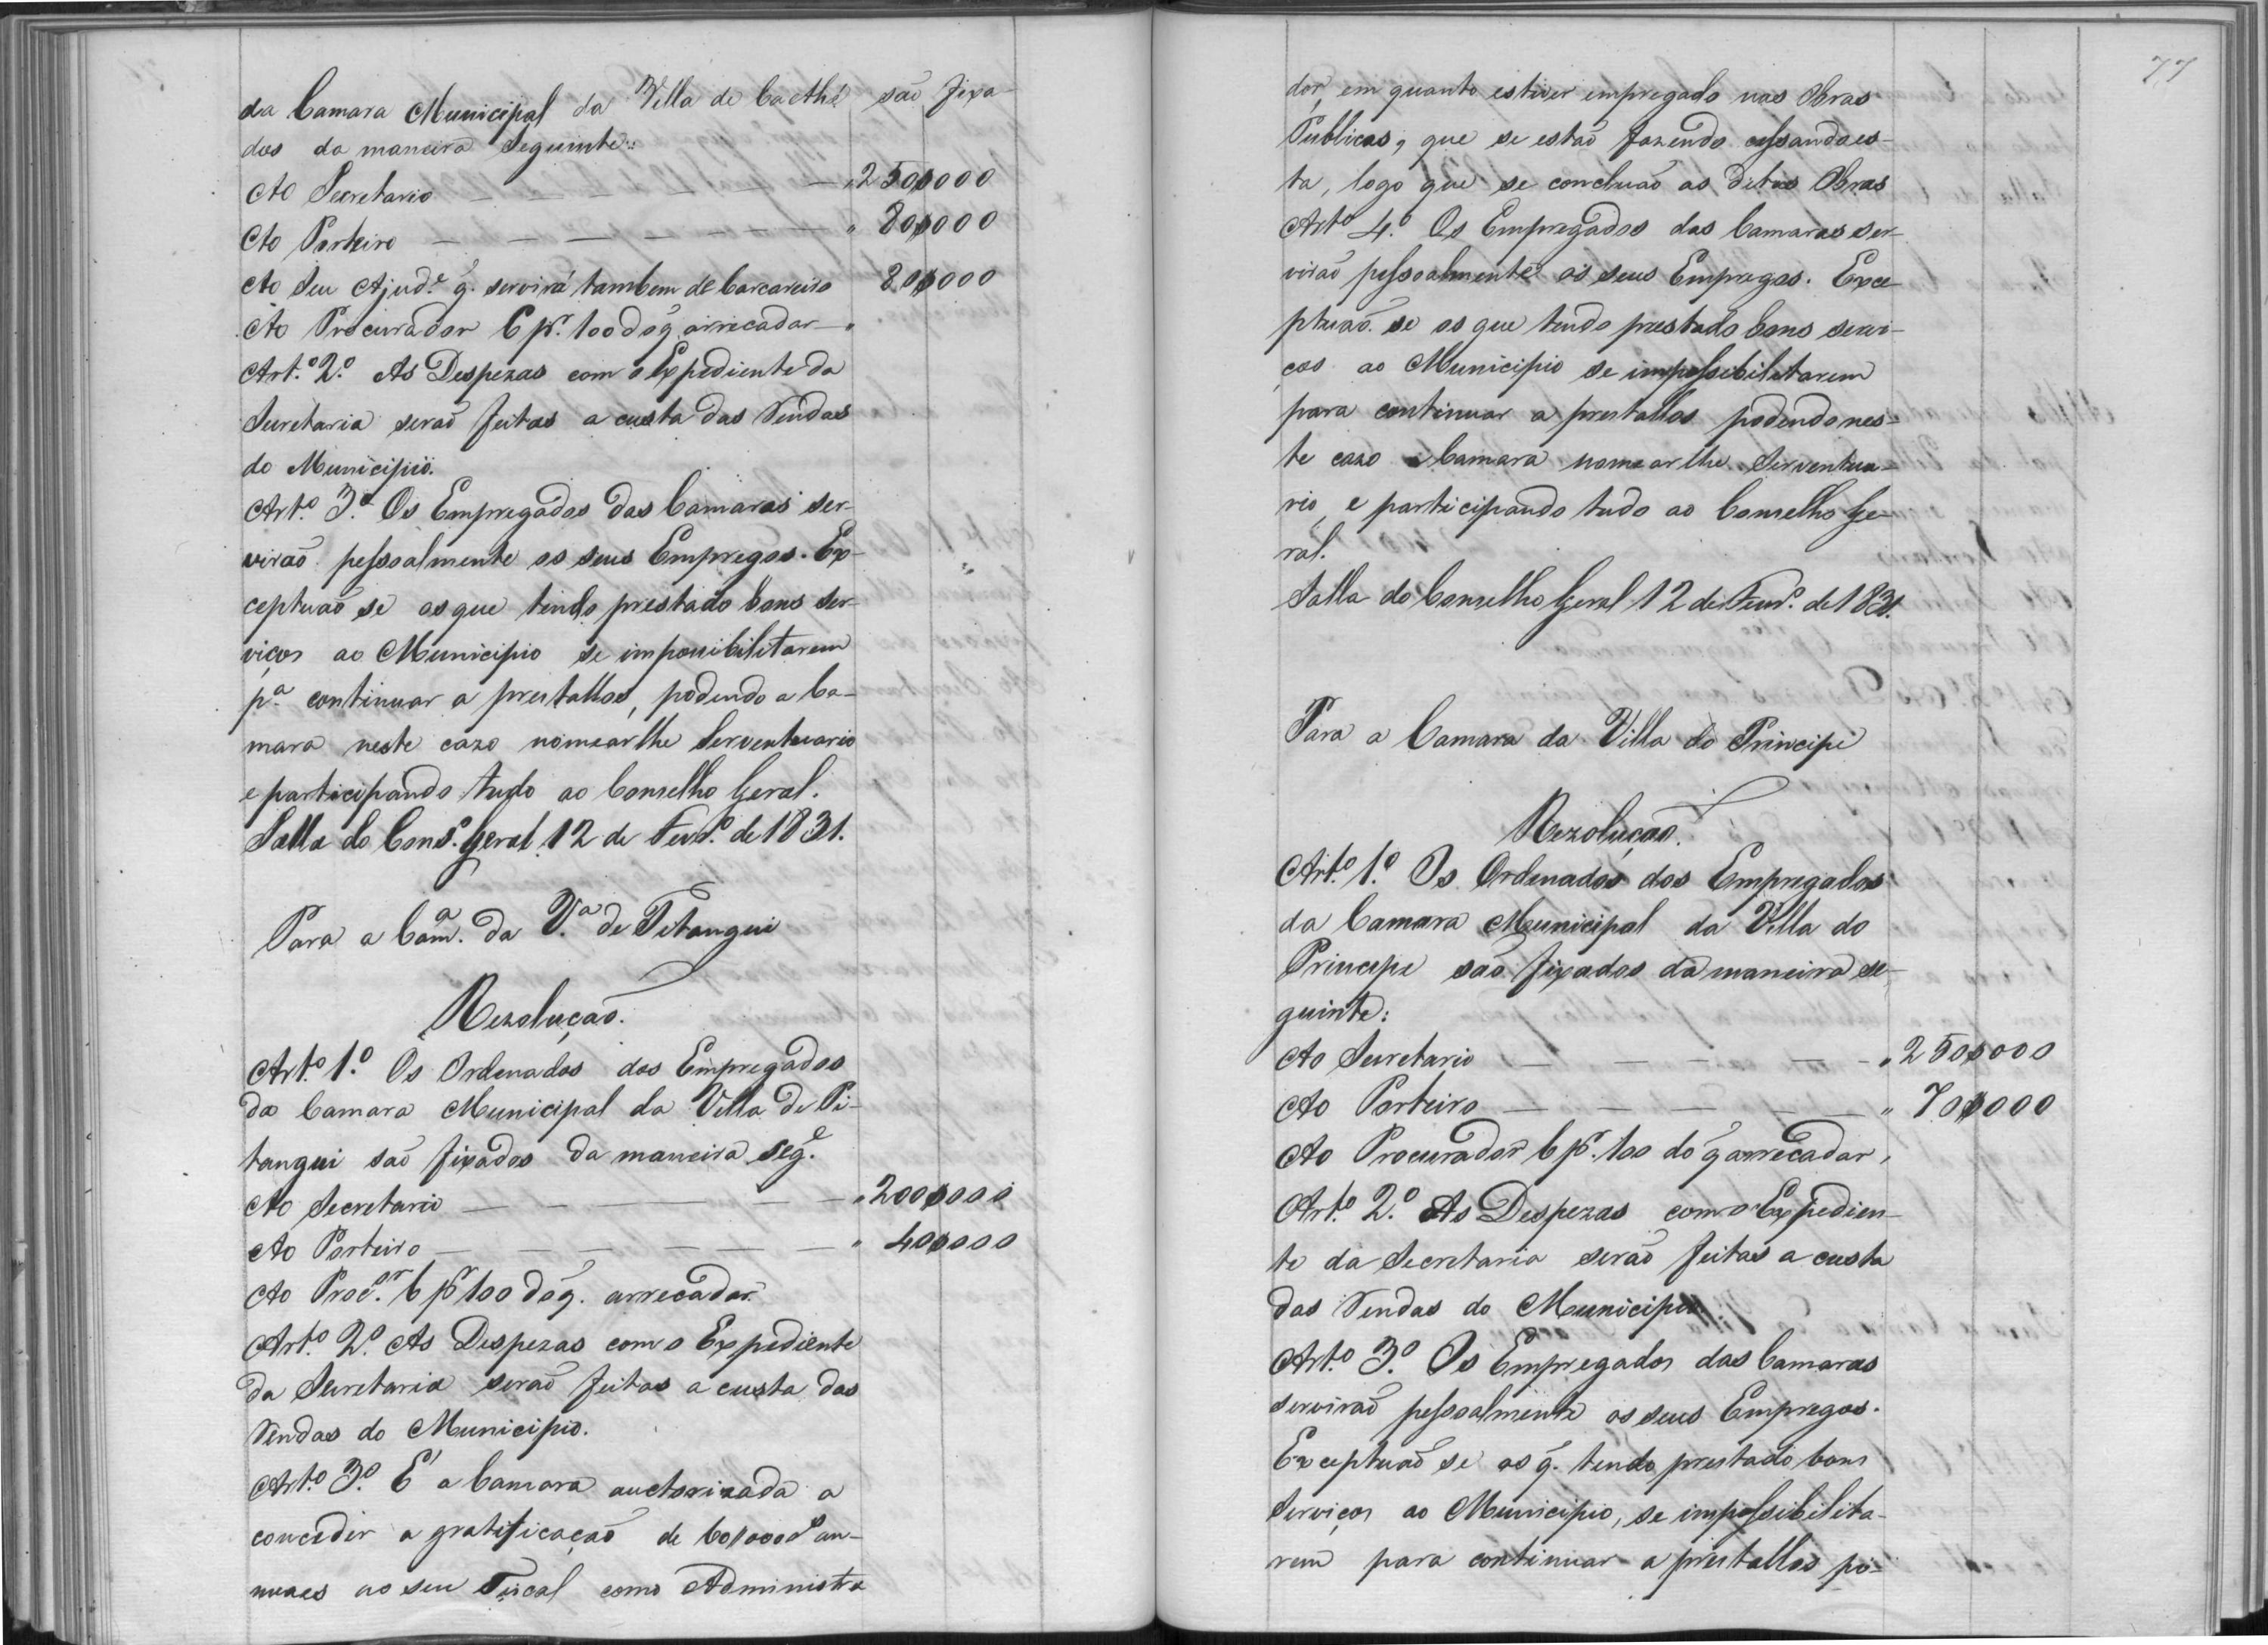 da Camara Municipal da Villa de Caethé são fixa
dos da maneira Seguinte:
Ao Secretario — — — — „ 250$000
Ao Porteiro — — — — — — — „ 80$000
Ao Seu Ajud.e q. servirá tambem de Carcareiro 80$000
Ao Procurador 6 pr. 100 do q̃ arrecadar — „
Art.º 2.º As Despezas com o Expediente da
Secretaria serão feitas a custa das Rendas
do Municipio.
Art.º 3.º Os Empregados das Camaras ser-
virão pessoalmente os seus Empregos. Ex-
ceptuão se os que tendo prestado bons ser-
viços ao Municipio se impossibilitarem
p.a continuar a prestallos, podendo a Ca-
mara neste cazo nomearlhe Serventuario
e participando tudo ao Conselho Geral.
Salla do Cons.º Geral 12 de Fevr.º de 1831.
Para a Cam.a da V.a de Pitangui
Rezolução.
Art.º 1.º Os Ordenados dos Empregados
da Camara Municipal da Villa de Pi-
tangui são fixados da maneira seg.e
Ao Secretario — — — — — „ 200$000
Ao Porteiro — — — — — — „ 40$000
Ao Proc.or 6 pr 100 do q̃. arrecadar.
Art.º 2.º As Despezas com o Expediente
da Secretaria serão feitas a custa das
Rendas do Municipio.
Art.º 3.º E' a Camara auctorizada a
conceder a gratificação de 60$000 rs an-
nuaes ao seu Fiscal como Administra
77
dor, em quanto estiver empregado nas Obras
Publicas, que se estão fazendo cessando es-
ta, logo que se concluão as ditas Obras
Art.º 4.º Os Empregados das Camaras ser-
virão pessoalmente os seus Empregos. Exce-
ptuão se os que tendo prestado bons servi-
ços ao Municipio se impossibilitarem
para continuar a prestallos podendo nes-
te cazo a Camara nomearlhe Serventua-
rio, e participando tudo ao Conselho Ge-
ral.
Salla do Conselho Geral 12 de Fevr.º de 1831.
Para a Camara da Villa do Principe
Rezolução.
Art.º 1.º Os Ordenados dos Empregados
da Camara Municipal da Villa do
Principe são fixados da maneira se-
guinte:
Ao Secretario — — — — — „ 250$000
Ao Porteiro — — — — — „ 70$000
Ao Procurador 6 pr. 100 do q̃ arrecadar,
Art.º 2.º As Despezas com o Expedien-
te da Secretaria serão feitas a custa
das Rendas do Municipio.
Art.º 3.º Os Empregados das Camaras
servirão pessoalmente os seus Empregos.
Exceptuão se os q̃. tendo prestado bons
Serviços ao Municipio, se impossibilita-
rem para continuar a prestallos po-